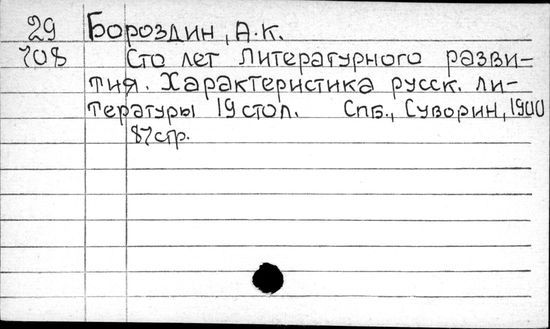 29 Бороздин, А.К.
708 Сто лет литературного разви-
тия. Характеристика русск. ли-
тературы 19 стол. Спб., Суворин, 1900
87 стр.